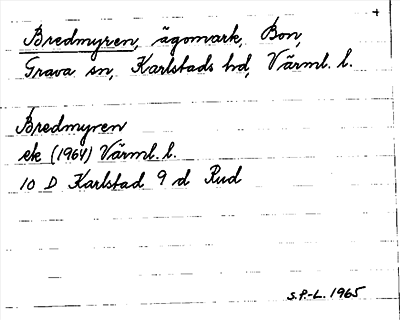 +
Bredmyren, ägomark, Bon,
Grava sn, Karlstads hd, Värml. l.
Bredmyren
ek (1964) Värml. l.
10 D Karlstad 9 d Rud
S.P.-L. 1965